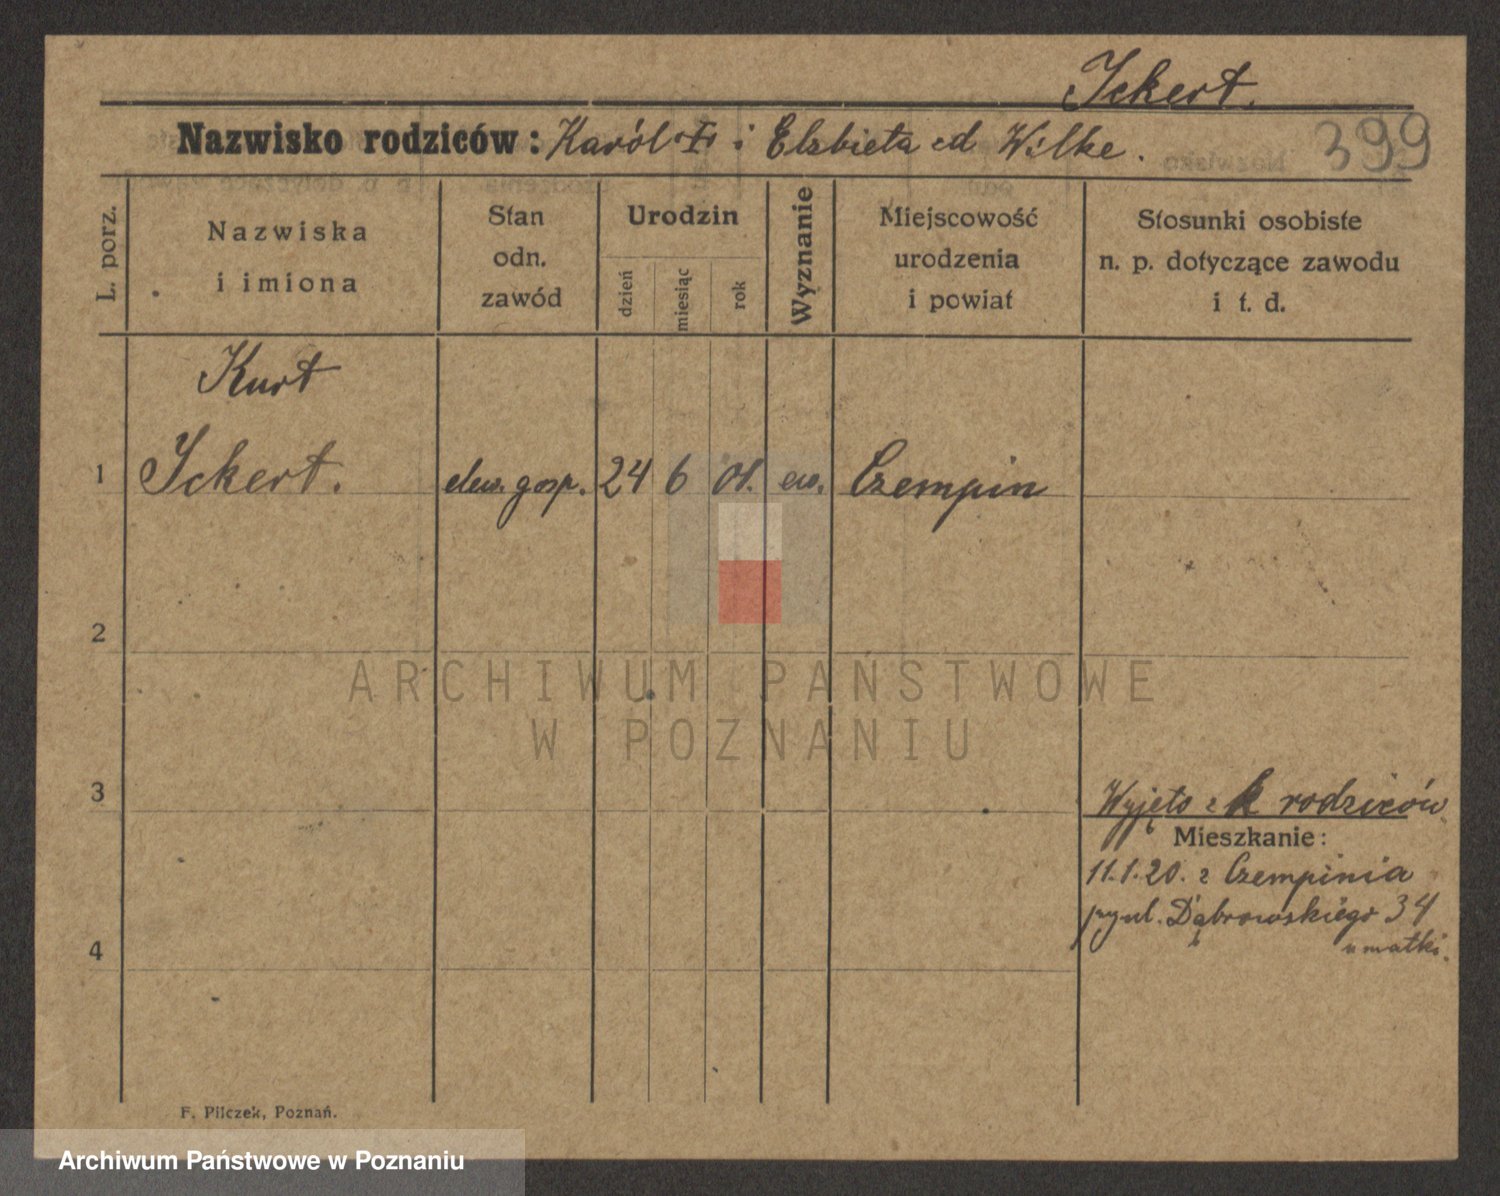 Ickert.
Nazwisko rodziców: Karól i Elzbieta cd Wilke.
399
L. porz.
Nazwiska
i imiona
Stan
odn.
zawód
Urodzin
dzień
miesiąc
rok
Wyznanie
Miejscowość
urodzenia
i powiat
Stosunki osobiste
n. p. dotyczące zawodu
i t. d.
Kurt
1 Ickert. elew. gosp. 24 6 01. ew. Czempin
2
ARCHIWUM PAŃSTWOWE
W POZNANIU
3
Wyjęto z k rodziców
Mieszkanie:
11.1.20. z Czempinia
Dąbrowskiego 34
u matki.
4
F. Pilczek, Poznań.
Archiwum Państwowe w Poznaniu